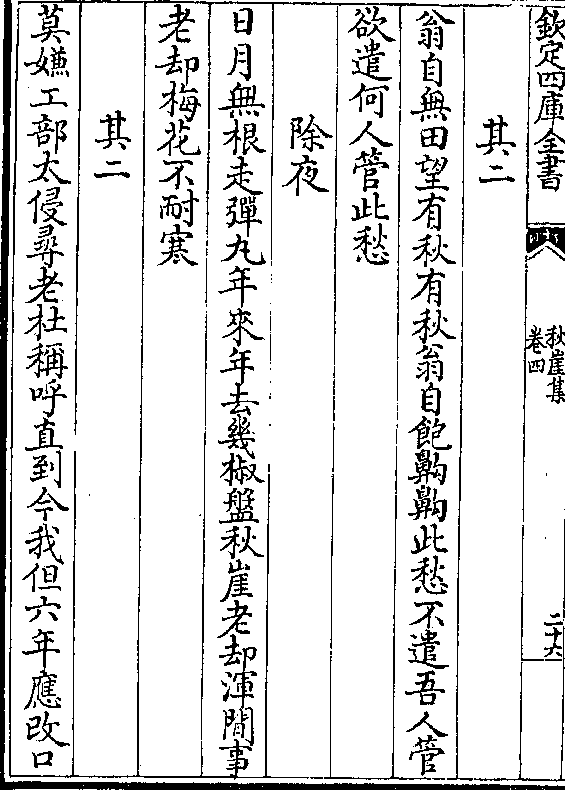 欽定四庫全書
秋崖集
卷四
二十六
其二
翁自無田望有秋有秋翁自飽齁齁此愁不遣吾人管
欲遣何人管此愁
除夜
日月無根走彈丸年來年去幾椒盤秋崖老却渾閒事
老却梅花不耐寒
其二
莫嫌工部太侵尋老杜稱呼直到今我但六年應改口